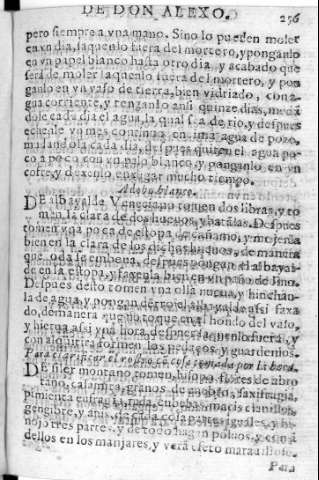 DE DON ALEXO. 256
pero siempre a vna mano. Sino lo pueden moler
en vn dia, saquenlo fuera del mortero, y ponganlo
en vn papel blanco hasta otro dia, y acabado que
será de moler saquenlo fuera del mortero, y pon
ganlo en vn vaso de tierra, bien vidriado, con a-
gua corriente, y tenganlo ansi quinze dias, mudá
dole cada dia el agua, la qual sea de rio, y despues
echenle vn mes continuo en una agua de pozo,
mudandola cada dia, despues quiten el agua po-
co a poco con vn paño blanco, y ponganlo en vn
cofre, y dexenlo enxugar mucho tiempo.
Adobo blanco.
DE albayalde Veneciano tomen dos libras, y to
men la clara de dos hueuos, y batalas. Despues
tomen vna poca de estopa de cañamo, y mojenla
bien en la clara de los dichos hueuos, de manera
que toda se embeua, despues pongan el albayal-
de en la estopa, y
Despues desto tomen vna olla nueua, y hinchan-
la de agua, y pongan dentro el albayalde assi faxa
do, de manera que no toque en el hondo del vaso,
y hierua assi vna hora, despues saquenlo fuera, y
con alquitira formen los pedaços, y guardenlos.
Para clarificar el rostro
DE siler montano comen, hisopo, flores de abro
tano, granos de saxifragia,
pimienta macis
gengibre, y anis, de cada cosa partes iguales, y hi-
nojo tres partes, y de todo hagan poluos, y coma
dellos en los manjares, y verá efeto marauilloso.
Para